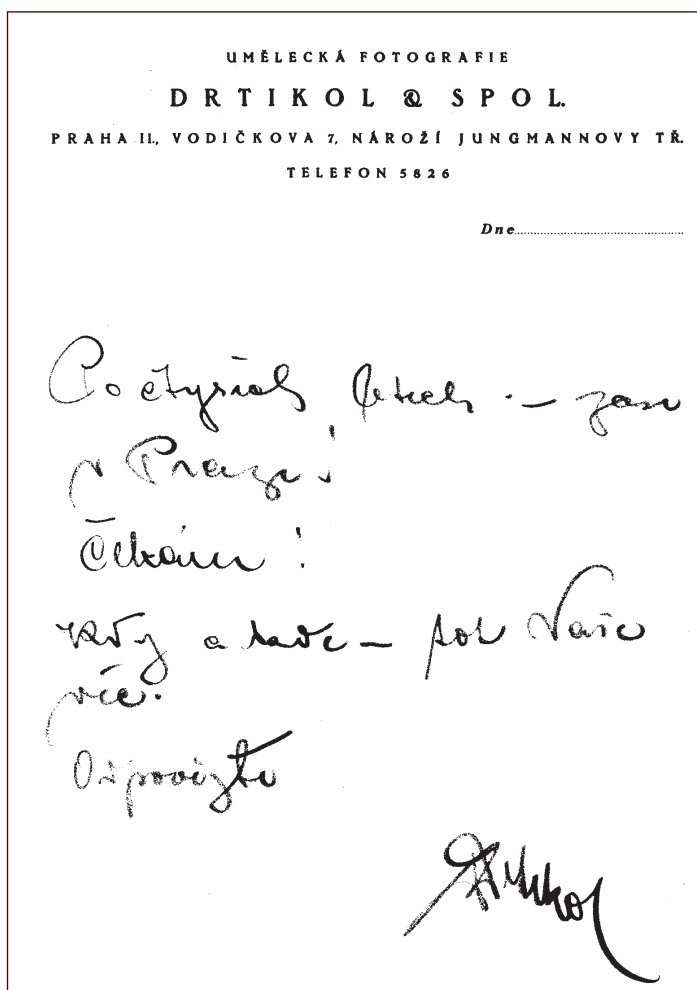 UMĚLECKÁ FOTOGRAFIE
DRTIKOL & SPOL.
PRAHA II., VODIČKOVA 7, NÁROŽÍ JUNGMANNOVY TŘ.
TELEFON 5826
Dne
Po čtyřech letech — zase
v Praze!
Čekám!
Kdy a kde — Vaše
více.
Odpovězte
Drtikol